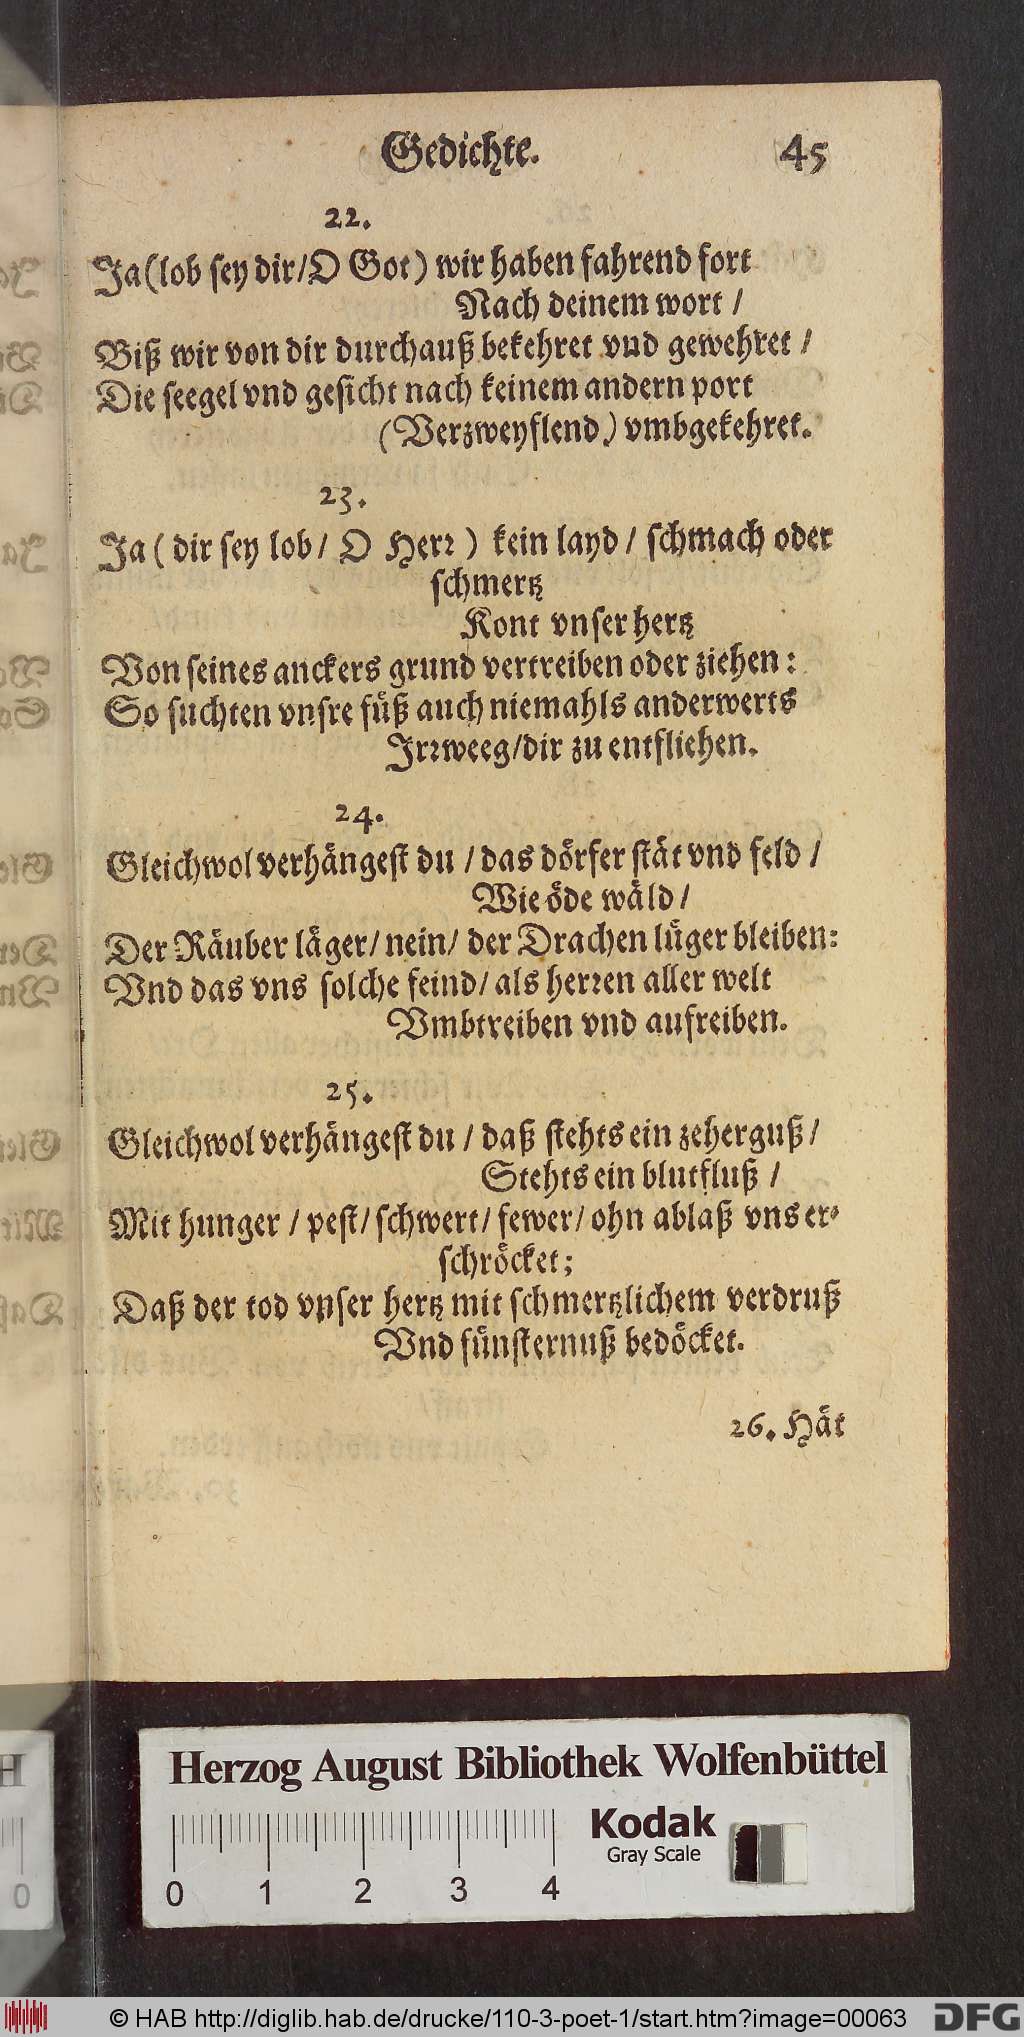 Gedichte. 45
22.
Ja (lob sey dir/O Got) wir haben fahrend fort
Nach deinem wort /
Biß wir von dir durchauß bekehret vnd gewehret /
Die seegel vnd gesicht nach keinem andern port
(Verzweyflend) vmbgekehret.
23.
Ja ( dir sey lob / O Herr ) kein layd / schmach oder
schmertz
Kont vnser hertz
Von seines anckers grund vertreiben oder ziehen:
So suchten vnsre füß auch niemahls anderwerts
Jrrweeg/dir zu entfliehen.
24.
Gleichwol verhängest du / das dörfer stät vnd feld /
Wie öde wäld /
Der Räuber läger/ nein/ der Drachen lüger bleiben:
Vnd das vns solche feind/ als herren aller welt
Vmbtreiben vnd aufreiben.
25.
Gleichwol verhängest du / daß stehts ein zeherguß /
Stehts ein blutfluß /
Mit hunger / pest/ schwert/ fewer/ ohn ablaß vns er-
schröcket;
Daß der tod vnser hertz mit schmertzlichem verdruß
Vnd fünsternuß bedöcket.
26. Hät
Herzog August Bibliothek Wolfenbüttel
Kodak
Gray Scale
0 1 2 3 4
© HAB http://diglib.hab.de/drucke/110-3-poet-1/start.htm?image=00063 DFG